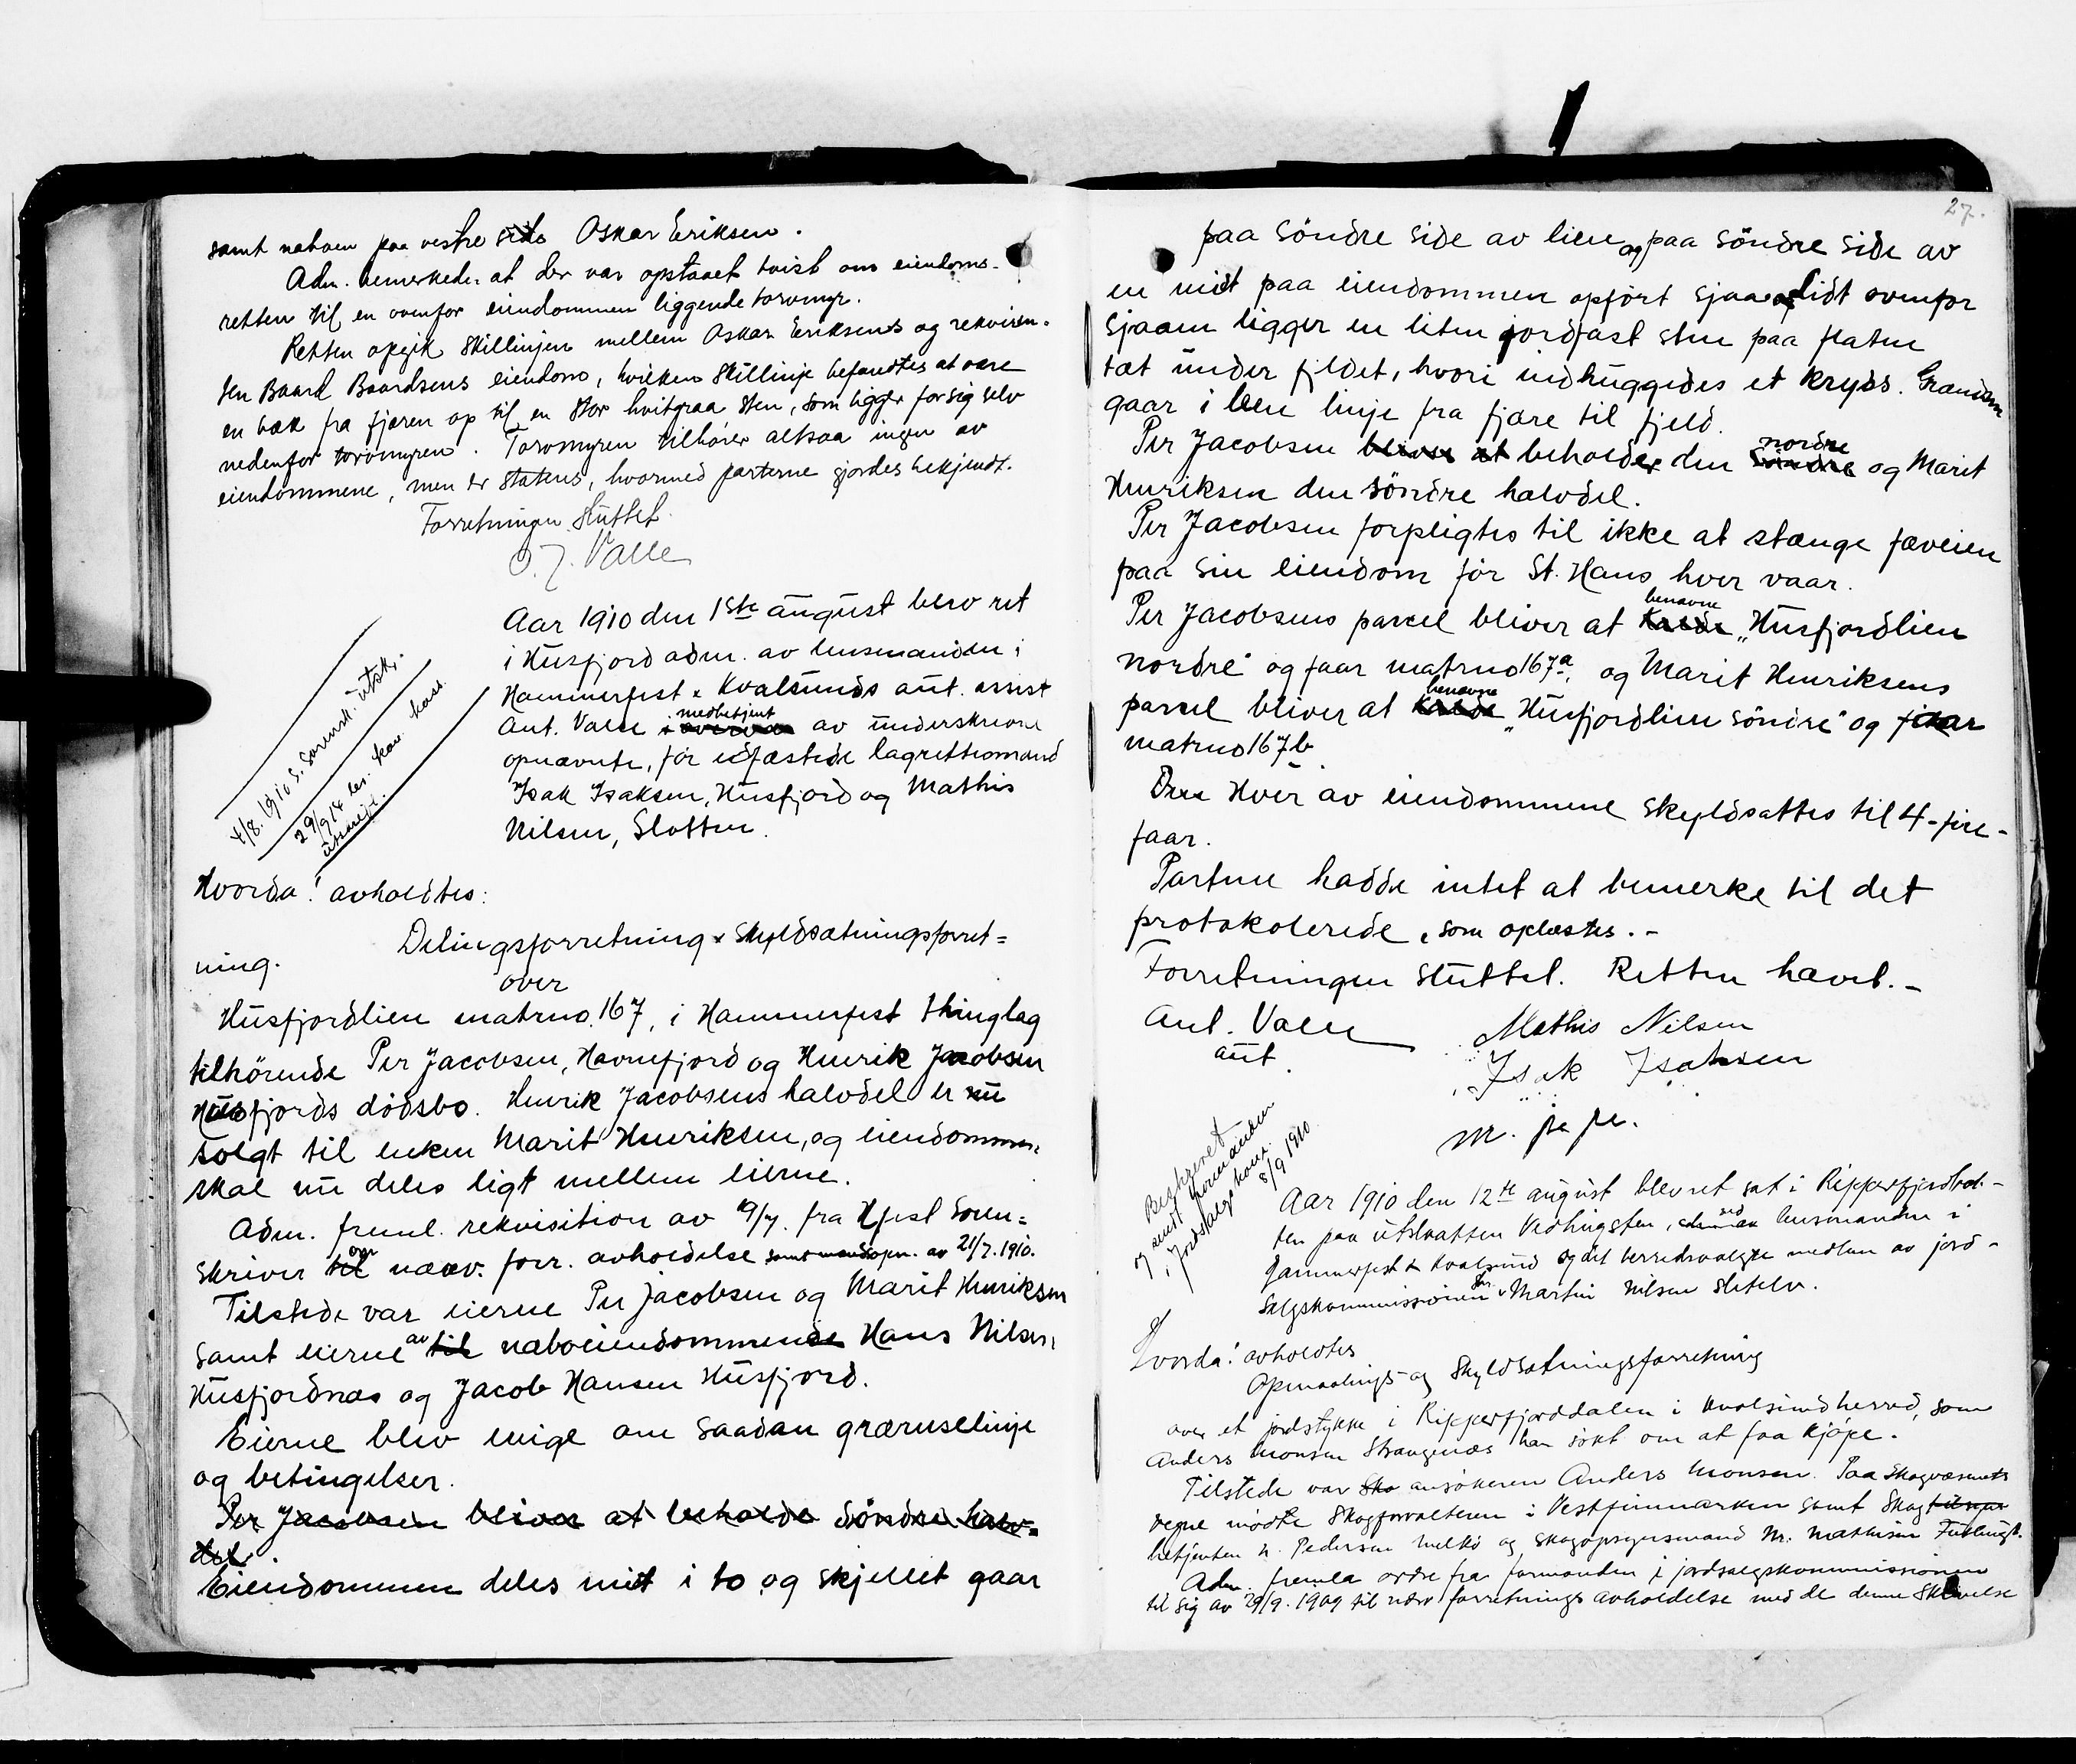 samt naboen paa vestre side Oskar Eriksen.
Adm. bemerkede at der var opstaaet tvist om eiendoms-
retten til en ovenfor eiendommen liggende torvmyr.
Retten opgik skillinjen mellem Oskar Eriksens og rekviren-
ten Baard Baardsens eiendom, hvilken skillinje befandtes at være
en bæk fra fjæren op til en stor hvitgraa sten, som ligger for sig selv
nedenfor torvmyren. Torvmyren tilhører altsaa ingen av
eiendommene, men er statens, hvormed parterne gjordes bekjendt.
Forretningen sluttet.
O. J. Valle
4/8. 1910 S. sorensk. utskr.
29/9 14 utskrift.
Aar 1910 den 1ste august blev ret
i Husfjord adm. av lensmanden i
Hammerfest & Kvalsunds aut. assist
Ant. Valle medbetjent av underskrevne
opnævnte, før edfæstede lagrettemænd
Isak Isaksen, Husfjord og Mathis
Nilsen, Slotten.
Hvorda! avholdtes:
Delingsforretning & Skyldsætningsforret=
ning.
over
Husfjordlien matrno. 167, i Hammerfest thinglag
tilhörende Per Jacobsen, Havnefjord og Henrik Jacobsen
Husfjords dödsbo. Henrik Jacobsens halvdel er nu
solgt til enken Marit Henriksen, og eiendommen
skal nu deles ligt mellem eierne.
Adm. freml. rekvisition av 19/7. fra Hfest Soren=
skriver til om nævv. forr. avholdelse samt mandsopn. av 21/7. 1910.
Tilstede var eierne Per Jacobsen og Marit Henriksen
samt eierne av til naboeiendommende Hans Nilsen,
Husfjordnæs og Jacob Hansen Husfjord.
Eierne blev enige om saadan grænselinje
og betingelser.
Per Jacobsen bliver at beholde söndre halv-
del.
Eiendommen deles midt i to og skjellet gaar
27.
paa söndre side av lien og paa söndre side av
en midt paa eiendommen opfört sjaa og lidt ovenfor
sjaaen ligger en liten jordfast sten paa flaten
tæt under fjeldet, hvori indhuggedes et kryds. Grændsen
gaar i ben linje fra fjære til fjeld.
Per Jacobsen bliver at beholder den söndre nordre og Marit
Henriksen den söndre halvdel.
Per Jacobsen forpligtes til ikke at stænge fæveien
paa sin eiendom för St. Hans hver vaar.
Per Jacobsens parcel bliver at benævne „Husfjordlien
nordre" og faar matrno 167a, og Marit Henriksens
parcel bliver at benævne „Husfjordlien söndre" og faar
matrno 167b
Hver av eiendommene skyldsattes til 4-fire-
faar.
Partene hadde intet at bemerke til det
protokolerede, som oplæstes.-
Forretningen sluttet. Retten hævet.-
Ant. Valle
aut.
Mathis Nilsen
Isak Isaksen
m. p. p.
Begjæret
formanden
i jordsalgskom.
8/9 1910.
Aar 1910 den 12te august blev ret sat i Ripperfjordbot-
ten paa utslaatten Vedhugsten, ved lensmanden i
Hammerfest & Kvalsund og det herredsvalgte medlem av jord-
salgskommissionen Martin Nilsen Sletelv.
Hvorda! avholdtes
Opmaalings- og Skyldsætningsforretning
over et jordstykke i Ripperfjorddalen i Kvalsund herred, som
Anders Monsen Strangenæs har sökt om at faa kjöpe.
Tilstede var Sko ansökeren Anders Monsen. Paa Skogvæsenets
vegne mödte Skogforvalteren i Vestfinnmarken samt Skog
betjenten N. Pedersen og skogopsynsmand M. Mathisen
Adm. fremla ordre fra formanden i jordsalgskommissionen
til sig av 29/9. 1909 til nævv forretnings avholdelse med de denne skrivelse